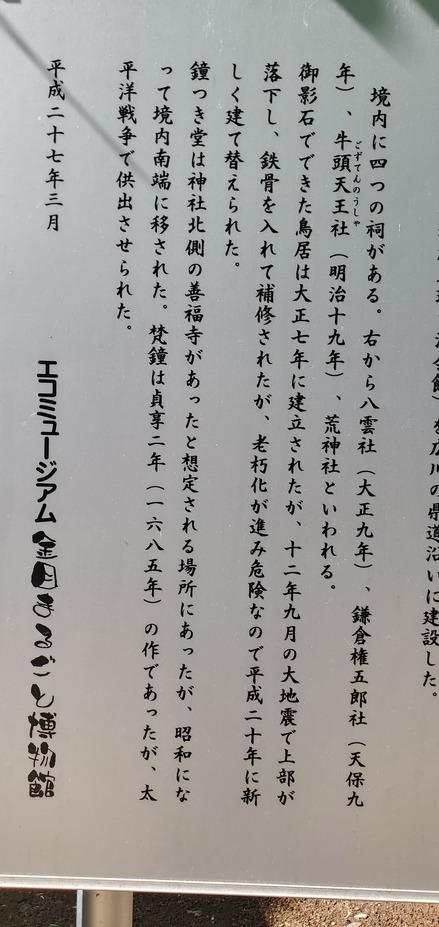 を広川の県道沿いに建設した。
境内に四つの祠がある。右から八雲社（大正九年）、鎌倉権五郎社（天保九
年）、牛頭天王社（明治十九年）、荒神社といわれる。
ごずてんのうしゃ
御影石でできた鳥居は大正七年に建立されたが、十二年九月の大地震で上部が
落下し、鉄骨を入れて補修されたが、老朽化が進み危険なので平成二十年に新
しく建て替えられた。
鐘つき堂は神社北側の善福寺があったと想定される場所にあったが、昭和にな
って境内南端に移された。梵鐘は貞享二年（一六八五年）の作であったが、太
平洋戦争で供出させられた。
平成二十七年三月
エコミュージアム金目まるごと博物館